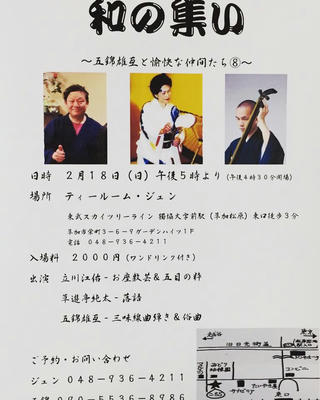 和の集い
～五錦雄互と愉快な仲間たち⑧～
日時 2月18日(日)午後5時より(午後4時30分開場)
場所 ティールーム・ジェン
東武スカイツリーライン 獨協大学前駅(草加松原)東口徒歩3分
草加市栄町3-6-9ガーデンハイツ1F
電話 048-936-4211
入場料 2000円(ワンドリンク付き)
出演 立川江佑-お座敷芸&五目の粋
草遊亭純太-落語
五錦雄互-三味線曲弾き&俗曲
ご予約・お問い合わせ
ジェン 048-936-4211
五錦 090-5536-8786
旧日光街道
コンビニ
東口